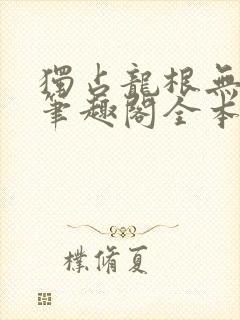 獨占龍根無
筆趣閣全本
樸脩夏